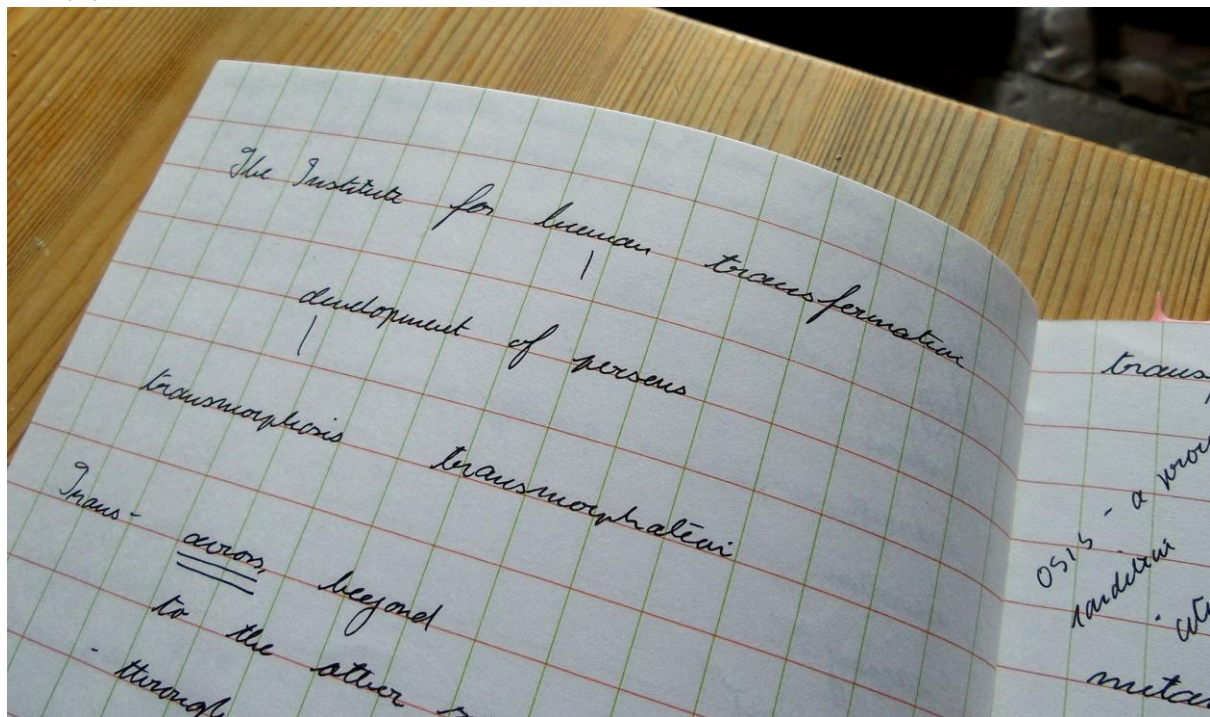 The Institute for human transformation
development of persons
transmorphosis transmorphation
Trans- across, beyond
to the other
- through
trans
OSIS - a
metam